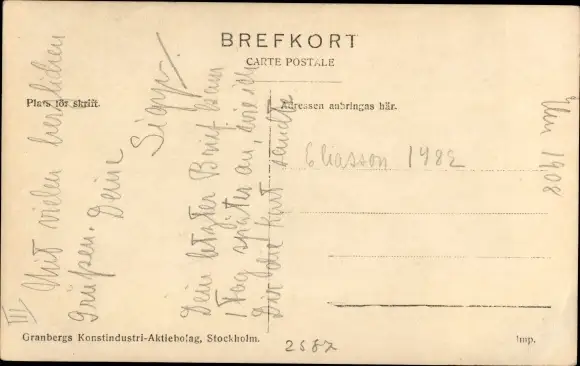 BREFKORT
CARTE POSTALE
Plats för skrift.
Adressen anbringas här.
III
Mit vielen herzlichen
Grüßen. Deine
Dein letzter Brief kam
1 Tag später an, wie ich
Dir die Kart sandte
Eliasson 1482
1908
Granbergs Konstindustri-Aktiebolag, Stockholm.
2587
Imp.